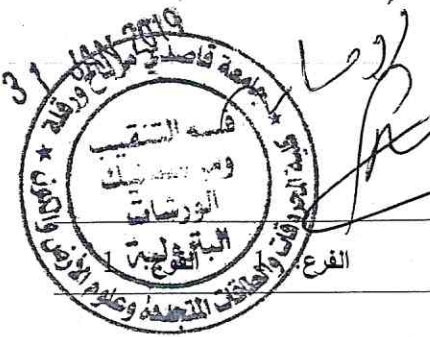 31 JAN 2019
جامعة قاصدي مرباح ورقلة
كلية المحروقات والطاقات المتجددة وعلوم الأرض والكون
قسم التنقيب
الورشات
البترولية
الفرع: 1 الفوج: 1